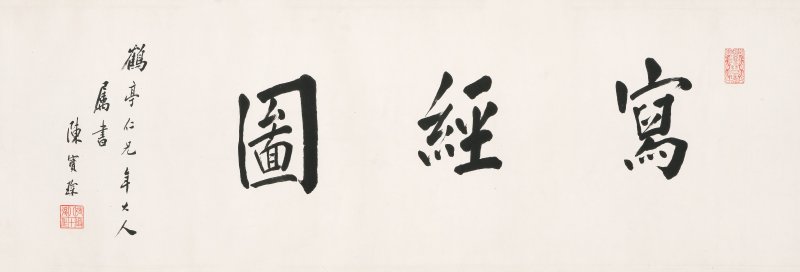 寫經圖
鶴亭仁兄年大人
屬書
陳寶琛